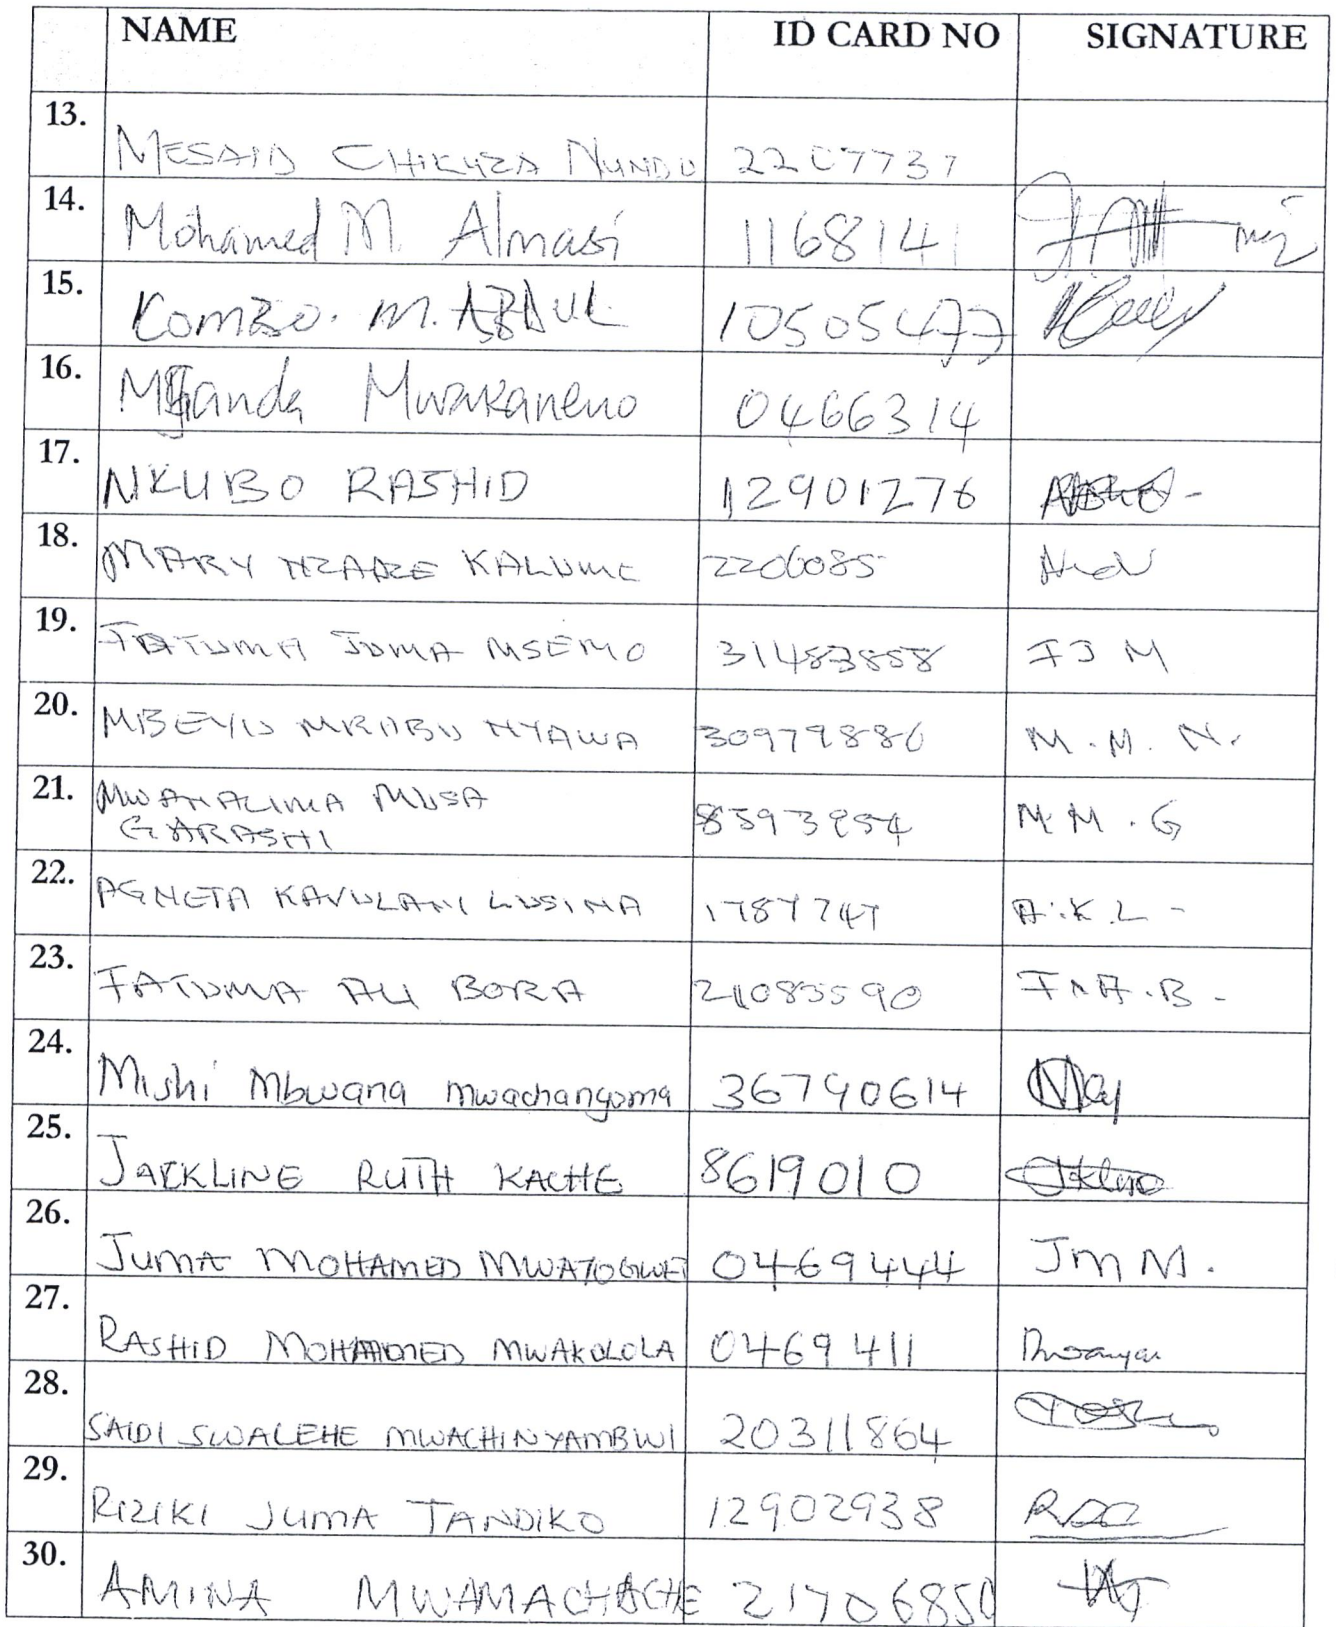 NAME ID CARD NO SIGNATURE
13. MESAID CHIKUZA NUNDU 2207737
14. Mohamed M. Almasi 1168141
15. KOMBO. M. ABDUL 10505477
16. Mganda Mwakaneno 0466314
17. NKUBO RASHID 12901276
18. MARY NZADZE KALUME 2206085
19. FATUMA JUMA MSEMO 31483858 FJM
20. MBEYU MRABU NYAWA 30979886 M.M.N.
21. MWANALIMA MUSA
GARASHI 8593954 M.M.G
22. AGNETA KAVULANI LUSINA 1787747 A.K.L-
23. FATUMA ALI BORA 21083590 F.A.B-
24. Mishi Mbwana mwachangoma 36790614
25. JACKLINE RUTH KACHE 8619010
26. JUMA MOHAMED MWATOGWE 0469444 JMM.
27. RASHID MOHAMMED MWAKULOLA 0469411
28. SAIDI SWALEHE MWACHINYAMBWI 20311864
29. RIZIKI JUMA TANDIKO 12902938
30. AMINA MWAMACHACHE 21706850